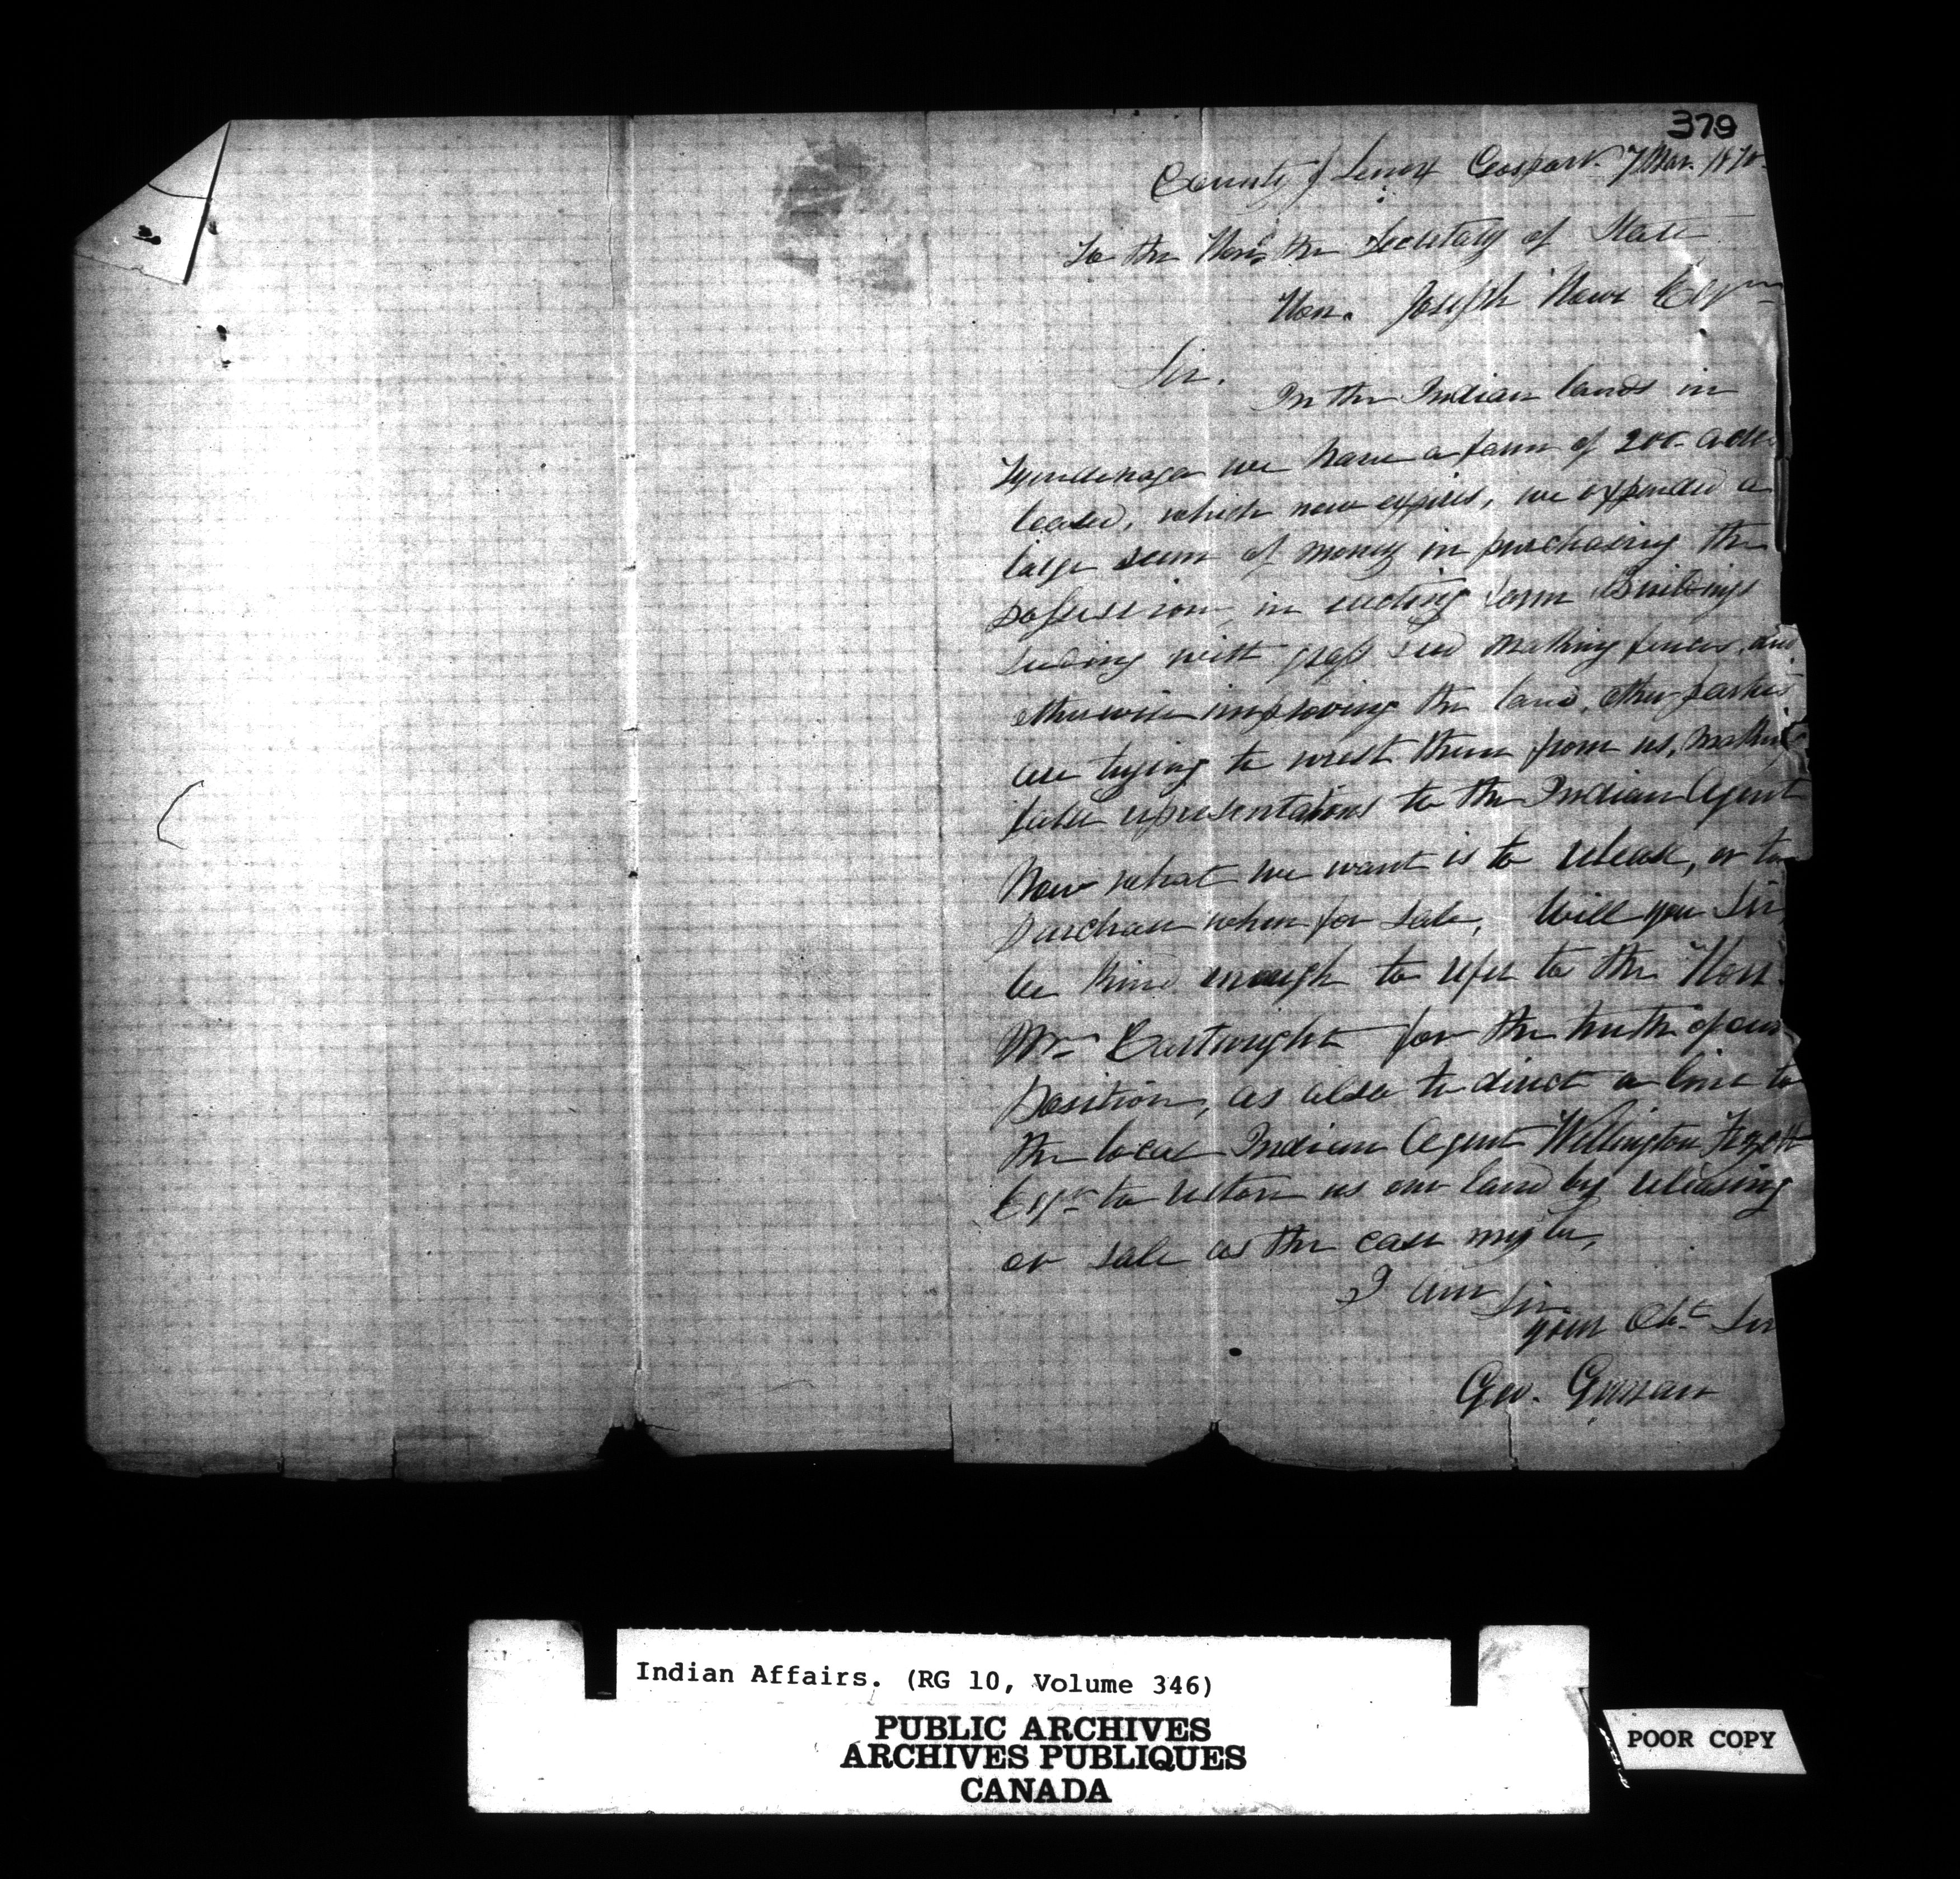 379
County of Lenox Gosport 7 Mar. 1870
To the Hon. the Secretary of State
Hon. Joseph Howe Esqre
Sir.
In the Indian lands in
Tyendenaga we have a farm of 200 acres
leased, which now expires, we expended a
large sum of money in purchasing the
possession, in erecting farm Buildings
seeding with grass seed making fences, and
otherwise improving the land, other parties
are trying to wrest them from us, making
false representations to the Indian Agent
Now what we want is to release, or to
purchase when for sale, Will you Sir,
be kind enough to refer to the Hon.
Mr Cartwright for the truth of our
position, as also to direct a line to
the local Indian Agent Wellington
Esqr to restore us our land by releasing
or sale as the case may be,
I am Sir
your Obt Ser
Geo.
Indian Affairs. (RG 10, Volume 346)
PUBLIC ARCHIVES
ARCHIVES PUBLIQUES
CANADA
POOR COPY